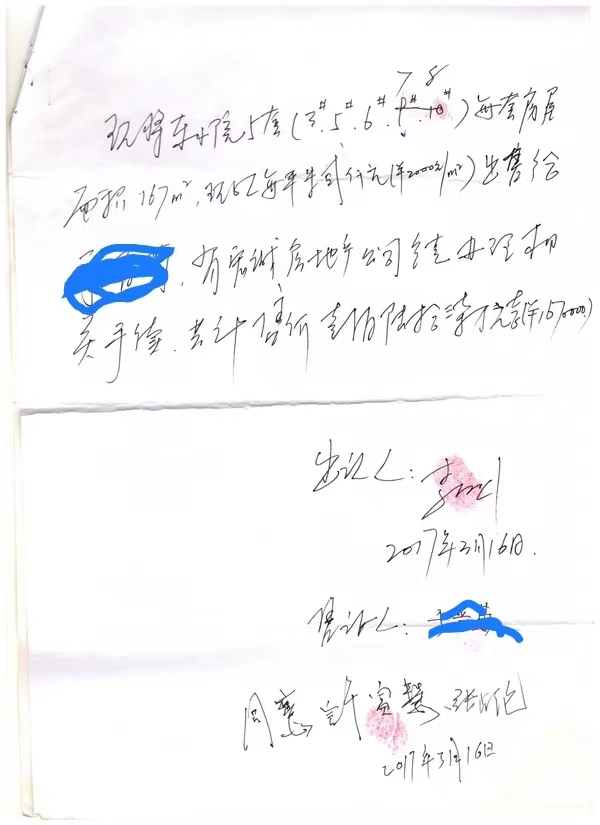 7 8
现将东小院5套(3#.5#.6#.9#.10#)每套房屋
面积167m²,现以每平米贰仟元(¥2000元/m²)出售给
,有宏诚房地产公司负责办理购
卖手续.共计售价壹佰陆拾柒万元整(¥1,670000.)
出让人:
2017年3月16日.
售让人:
周 许宝慧 张占伦
2017年3月16日